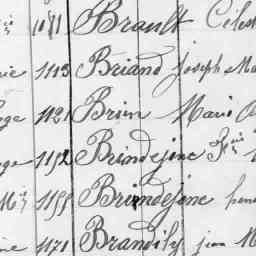 1081 Brault Célest
1113 Briand Joseph Ma
1121 Brien Marie
1152 Brindejone Fçois
1155 Brindejone
1171 Brandily jean M